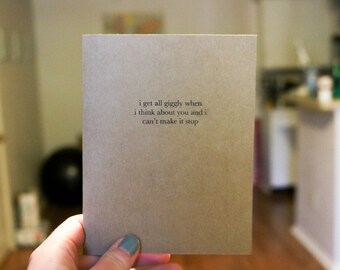 i get all giggly when
i think about you and i
can't make it stop